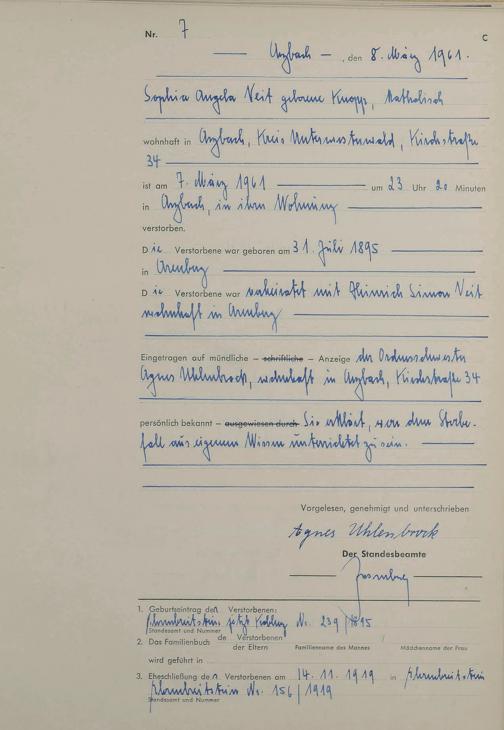 Nr. 7
C
Arzbach, den 8. März 1961.
Sophia Angela Veit geborene Knopp, katholisch
wohnhaft in Arzbach, Kreis Unterwesterwald, Kirchstraße
34
ist am 7. März 1961 um 23 Uhr 20 Minuten
in Arzbach, in ihrer Wohnung
verstorben.
Die Verstorbene war geboren am 31. Juli 1895
in Arenberg
Die Verstorbene war verheiratet mit Heinrich Simon Veit
wohnhaft in Arenberg
Eingetragen auf mündliche – schriftliche – Anzeige der Ordensschwester
Agnes Uhlenbrock, wohnhaft in Arzbach, Kirchstraße 34
persönlich bekannt – ausgewiesen durch Sie erklärt, von dem Sterbe-
fall aus eigenem Wissen unterrichtet zu sein.
Vorgelesen, genehmigt und unterschrieben
Agnes Uhlenbrock
Der Standesbeamte
1. Geburtseintrag der Verstorbenen:
Ehrenbreitstein jetzt Koblenz Nr. 239/1895
Standesamt und Nummer
2. Das Familienbuch de Verstorbenen
der Eltern Familienname des Mannes Mädchenname der Frau
wird geführt in
3. Eheschließung der Verstorbenen am 14.11.1919 in Ehrenbreitstein
Ehrenbreitstein Nr. 156/1919
Standesamt und Nummer